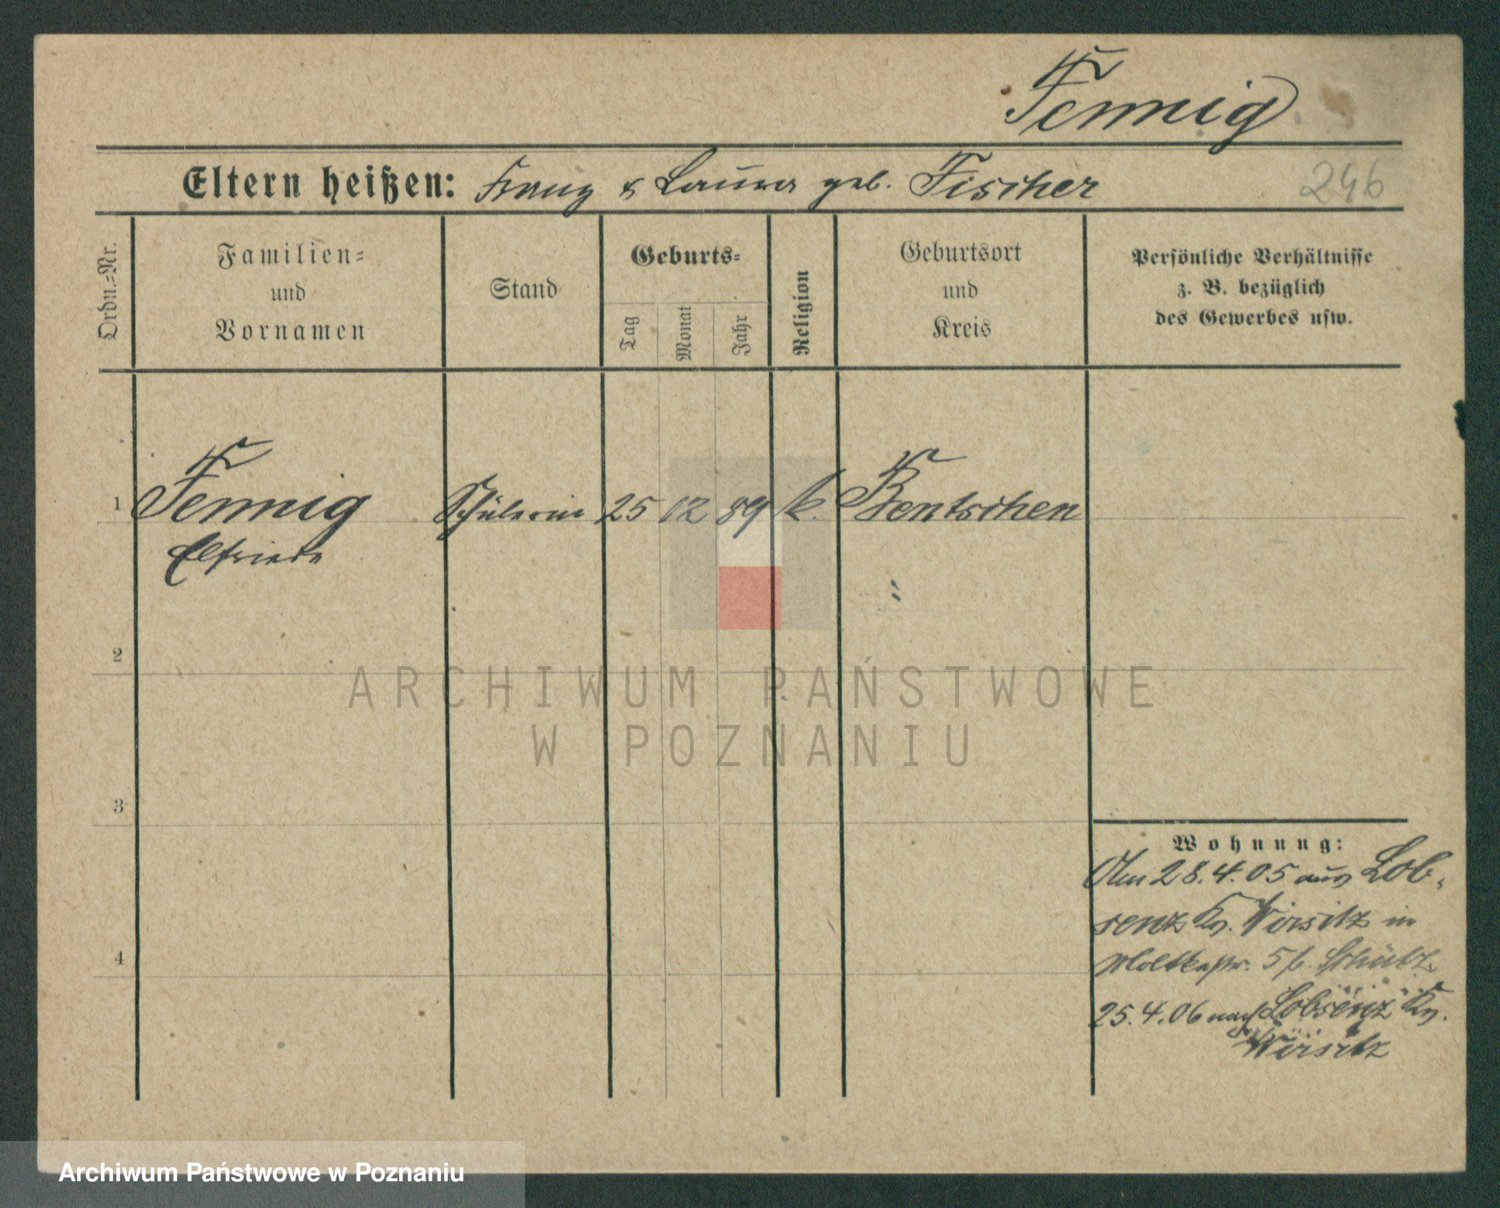 Fennig
Eltern heißen: Franz & Laura geb. Fischer
246
Ordn.=Nr.
Familien=
und
Vornamen
Stand
Geburts=
Tag
Monat
Jahr
Religion
Geburtsort
und
Kreis
Persönliche Verhältnisse
z. B. bezüglich
des Gewerbes usw.
1 Fennig Schülerin 25 12 89 k. Bentschen
Elfriede
2
ARCHIWUM PAŃSTWOWE
W POZNANIU
3
Wohnung:
28.4.05 aus Lob-
senz Kr. Wirsitz in
Moltkestr. 5 b.
4
25.4.06 nach Lobsenz Kr.
Wirsitz
Archiwum Państwowe w Poznaniu